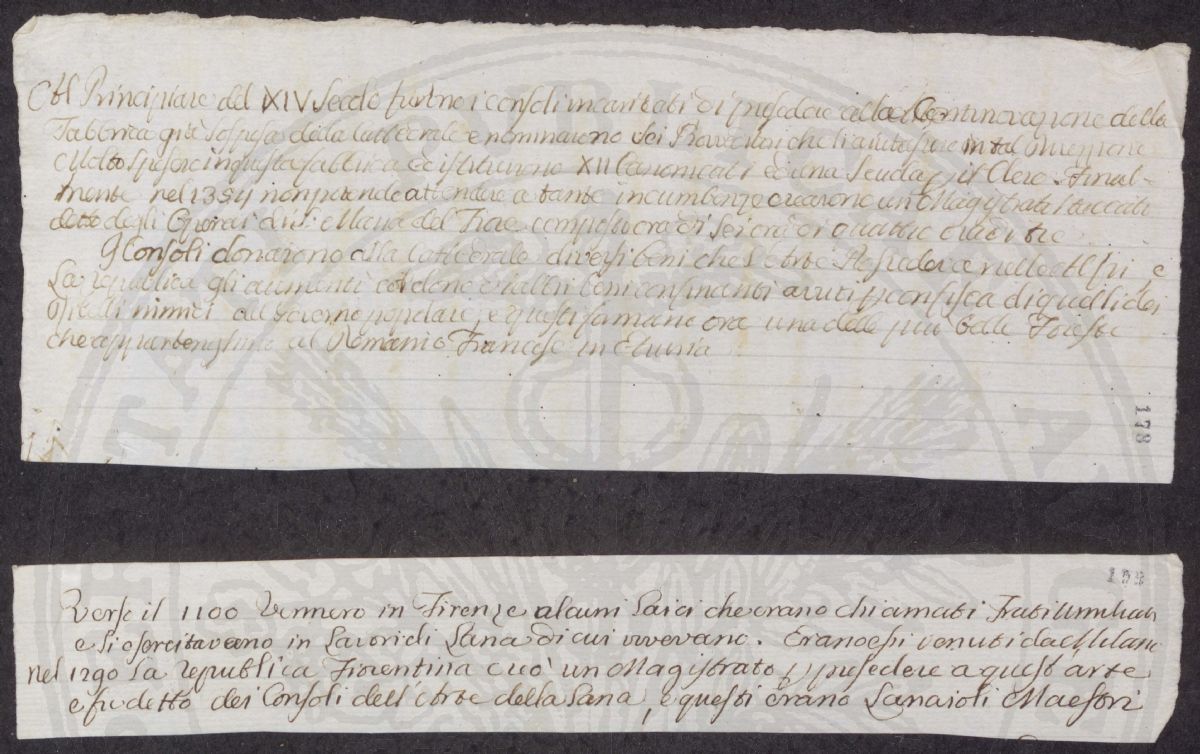 Al Principiare del XIV secolo furono i consoli incaricati di presedere alla Continovazione della
Fabbrica già sospesa della Cattedrale e nominarono sei che li aiutassero in tal
Molto spesero in questa fabbrica ed istituirono XII Canonicati ed una Scuola p il Clero. Final-
mente nel 1354 non potendo attendere a tante incumbenze crearono un Magistrato staccato
detto degli Operai di S. Maria del Fiore composto ora di sei ora di quattro ora di tre
G Consoli donarono alla Cattedrale diversi beni che l'Arte Possedeva nelle Alpi e
La republica gli aumentò con altri beni confinanti avuti p confisca di quelli dei
nimici al Governo popolare, e questi formano ora una delle più belle Foreste
che appartenghino al Francese in Etruria
178
199
Verso il 1100 Vennero in Firenze alcuni Laici che erano chiamati Frati Umiliati
e si esercitavano in Lavori di Lana di cui vivevano. Erano essi venuti da Milano
nel 1290 La republica Fiorentina creò un Magistrato p presedere a quest arte
e fu detto dei Consoli dell'Arte della Lana, e questi erano Lanaioli Maestri